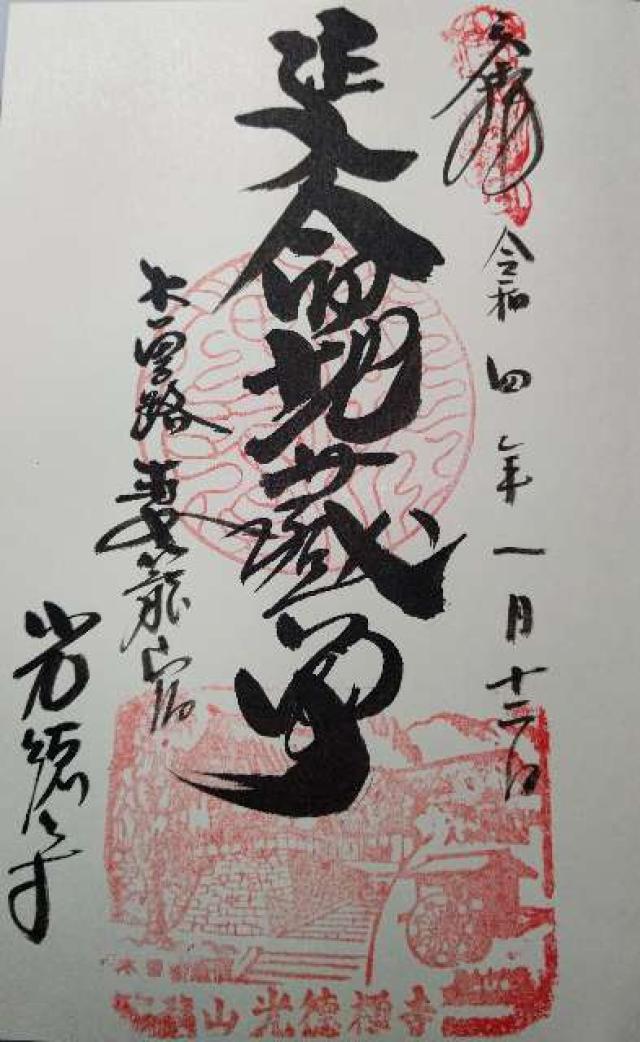 奉拝
令和四年一月十二日
延命地蔵尊
木曽路 妻籠宿
光徳寺
山光徳禅寺